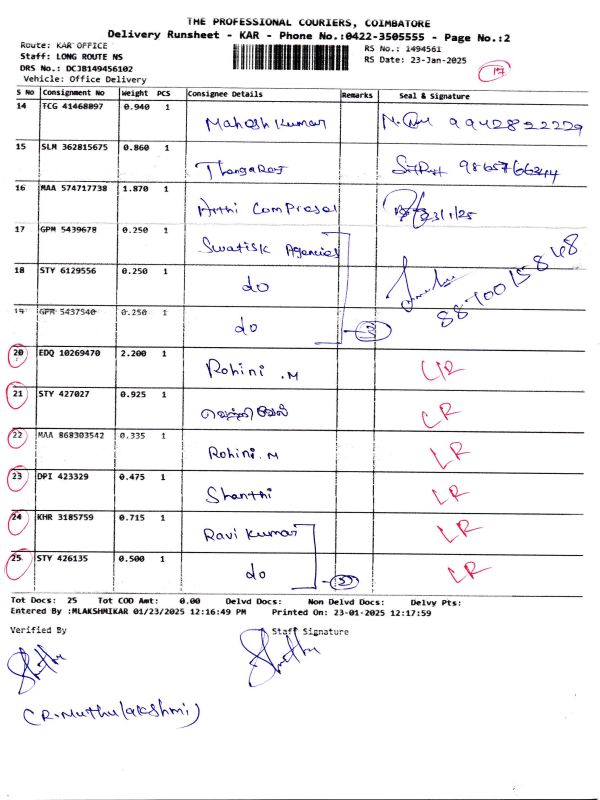 THE PROFESSIONAL COURIERS, COIMBATORE
Delivery Runsheet - KAR - Phone No.:0422-3505555 - Page No.:2
Route: KAR OFFICE RS No.: 1494561
Staff: LONG ROUTE NS RS Date: 23-Jan-2025
DRS No.: DCJB149456102
Vehicle: Office Delivery
S No Consignment No Weight PCS Consignee Details Remarks Seal & Signature
14 TCG 41468897 0.940 1
Mahesh Kumar 9942822229
15 SLM 362815675 0.860 1
Thangaraj 9865766344
16 MAA 574717738 1.870 1
23/1/25
17 GPM 5439678 0.250 1
Swatisk Agencies
18 STY 6129556 0.250 1
do 8870015848
19 GPM 5437540 0.250 1
do 3
20 EDQ 10269470 2.200 1
Rohini .M LR
21 STY 427027 0.925 1
வெற்றிவேல் LR
22 MAA 868303542 0.335 1
Rohini .M LR
23 DPI 423329 0.475 1
Shanthi LR
24 KHR 3185759 0.715 1
Ravi Kumar LR
25 STY 426135 0.500 1
do LR
Tot Docs: 25 Tot COD Amt: 0.00 Delvd Docs: Non Delvd Docs: Delvy Pts:
Entered By :MLAKSHMIKAR 01/23/2025 12:16:49 PM Printed On: 23-01-2025 12:17:59
Verified By Staff Signature
(R.Muthulakshmi)